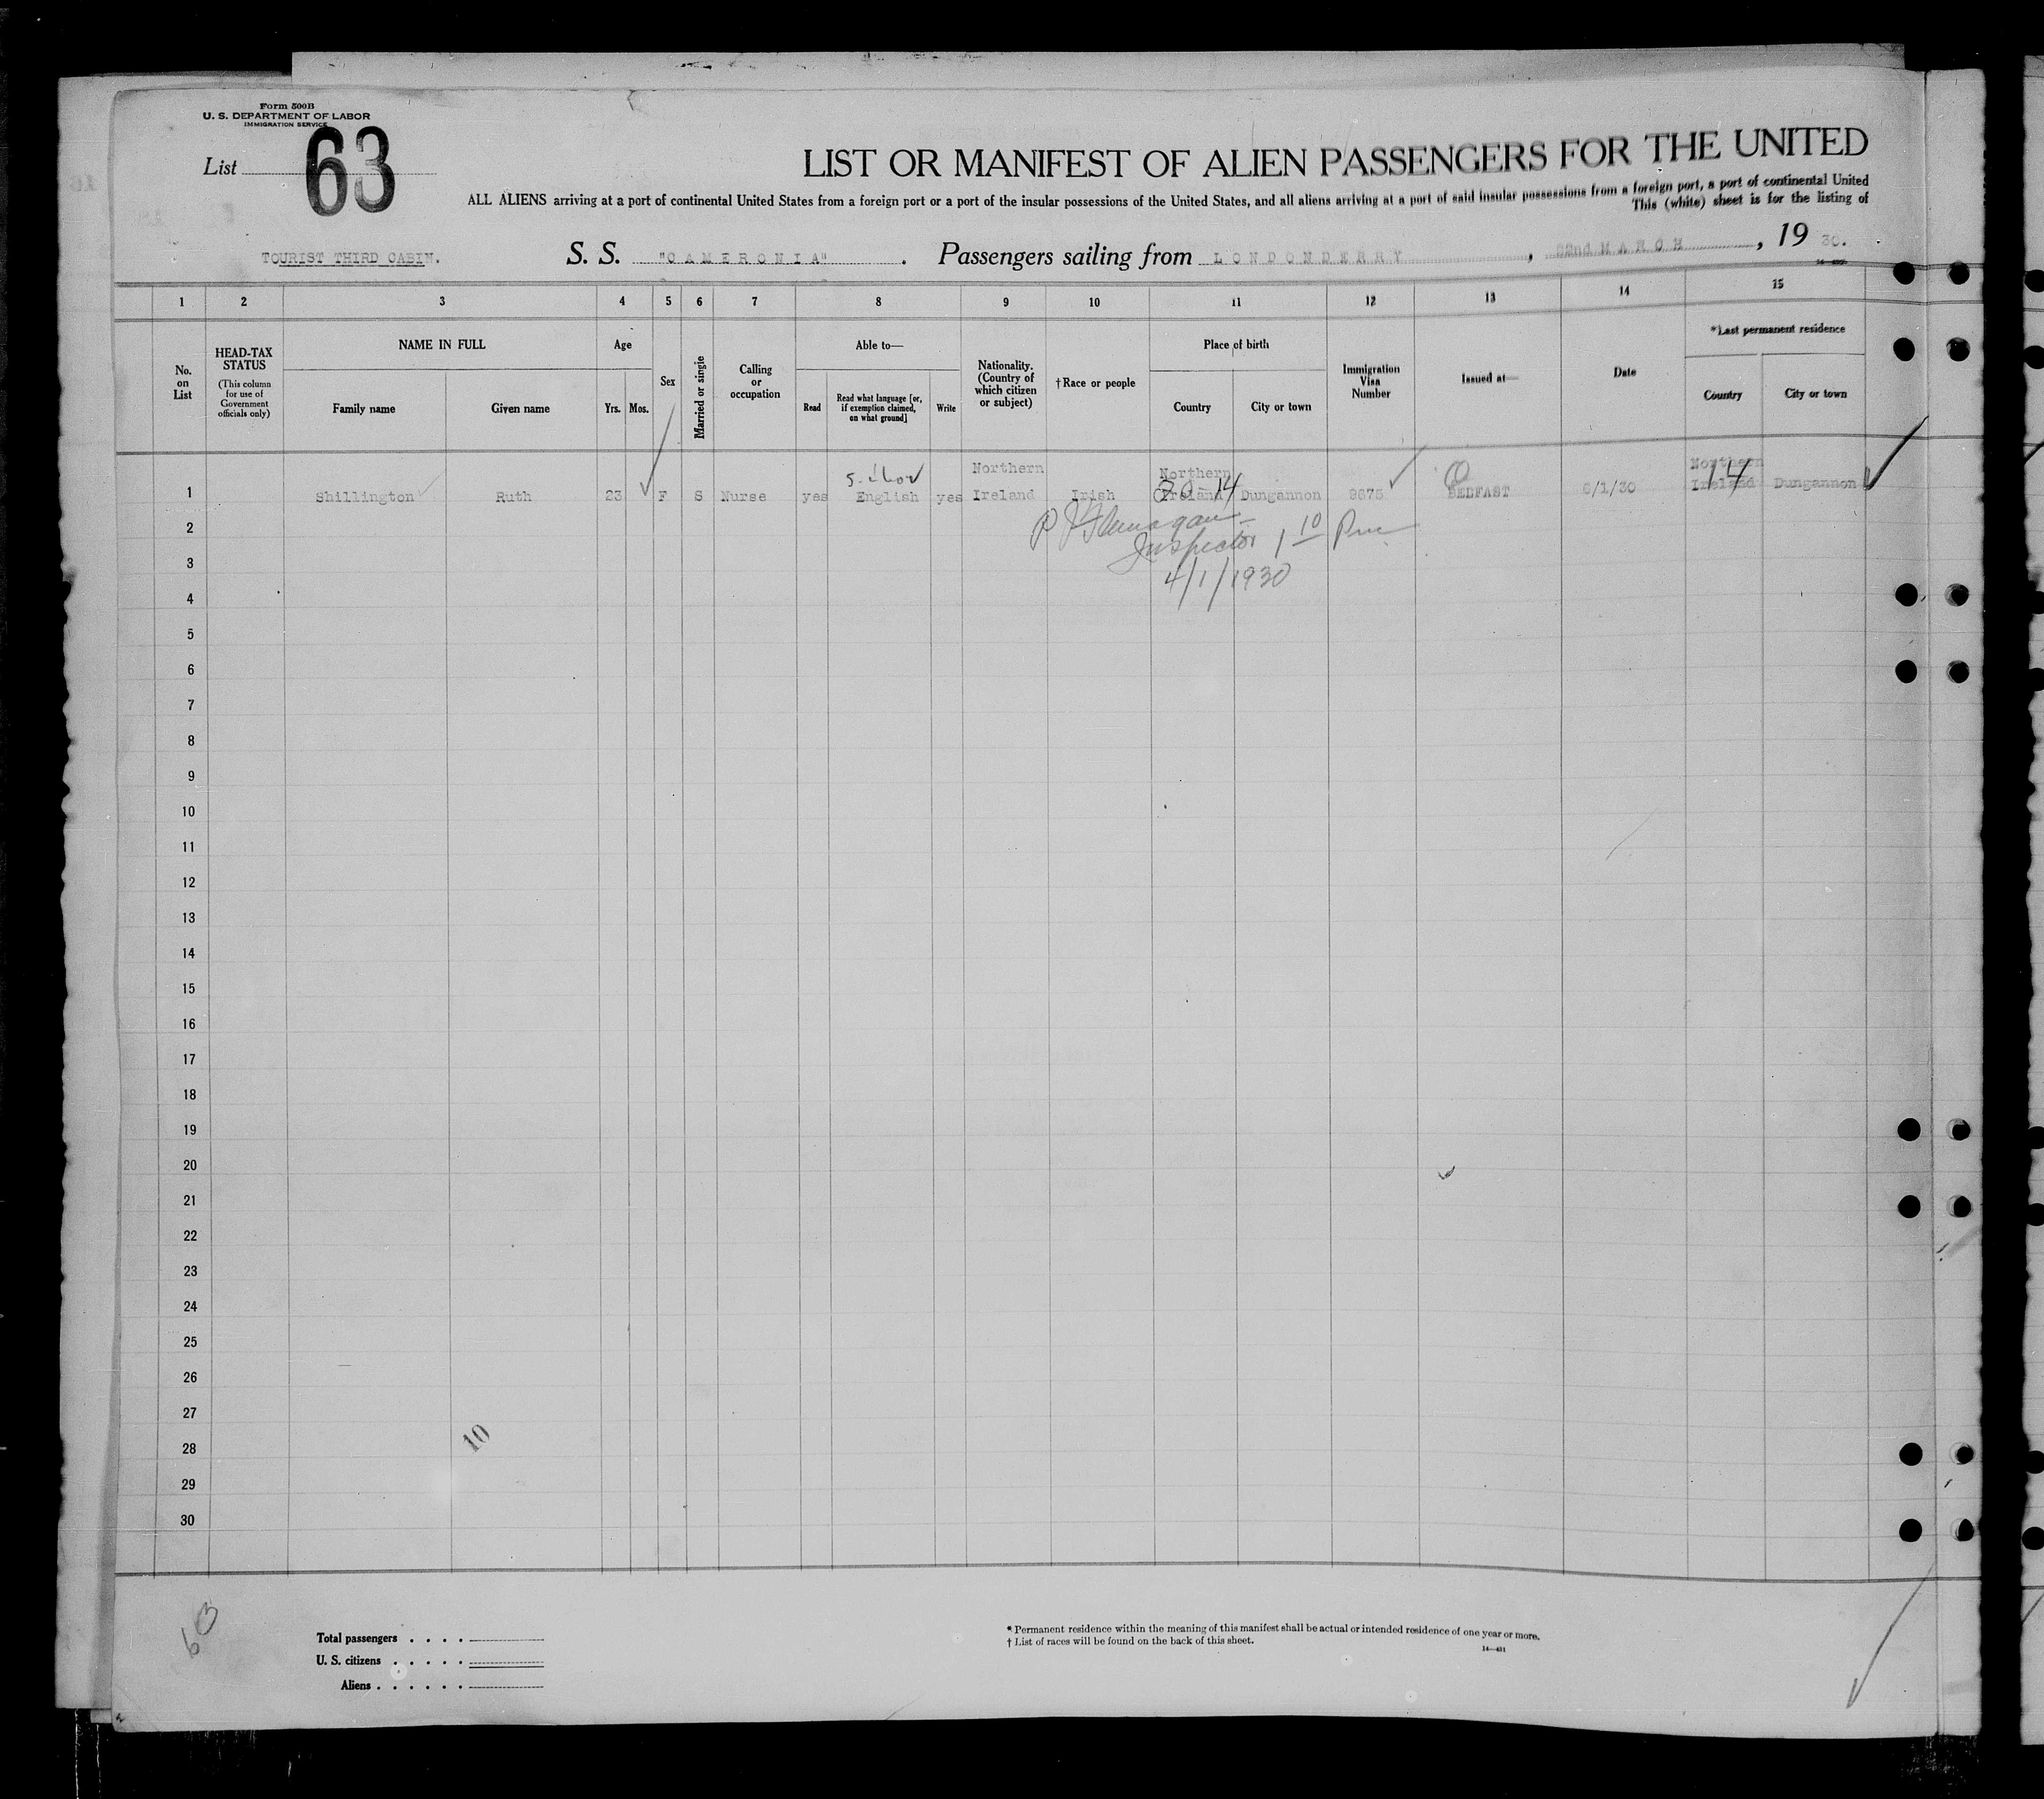 Form 500B
U. S. DEPARTMENT OF LABOR
IMMIGRATION SERVICE
List 63
LIST OR MANIFEST OF ALIEN PASSENGERS FOR THE UNITED
ALL ALIENS arriving at a port of continental United States from a foreign port or a port of the insular possessions of the United States, and all aliens arriving at a port of said insular possessions from a foreign port, a port of continental United
This (white) sheet is for the listing of
TOURIST THIRD CABIN. S. S. "CAMERONIA" . Passengers sailing from LONDONDERRY , 22nd MARCH , 19 30.
1 2 3 4 5 6 7 8 9 10 11 12 13 14 15
No. on List
HEAD-TAX STATUS
(This column for use of Government officials only)
NAME IN FULL
Family name
Given name
Age
Yrs.
Mos.
Sex
Married or single
Calling or occupation
Able to—
Read
Read what language [or, if exemption claimed, on what ground]
Write
Nationality. (Country of which citizen or subject)
†Race or people
Place of birth
Country
City or town
Immigration Visa Number
Issued at—
Date
*Last permanent residence
Country
City or town
1 Shillington Ruth 23 F S Nurse yes English yes Northern Ireland Irish Northern Ireland Dungannon 9675 BEDFAST 6/1/30 Northern Ireland Dungannon
14
14
2
P J Flanagan
Inspector 1 10 Pm
3
4/1/1930
4
5
6
7
8
9
10
11
12
13
14
15
16
17
18
19
20
21
22
23
24
25
26
27
28
29
30
10
63
Total passengers . . . .
U. S. citizens . . . . .
Aliens . . . . . .
* Permanent residence within the meaning of this manifest shall be actual or intended residence of one year or more.
† List of races will be found on the back of this sheet.
14—431